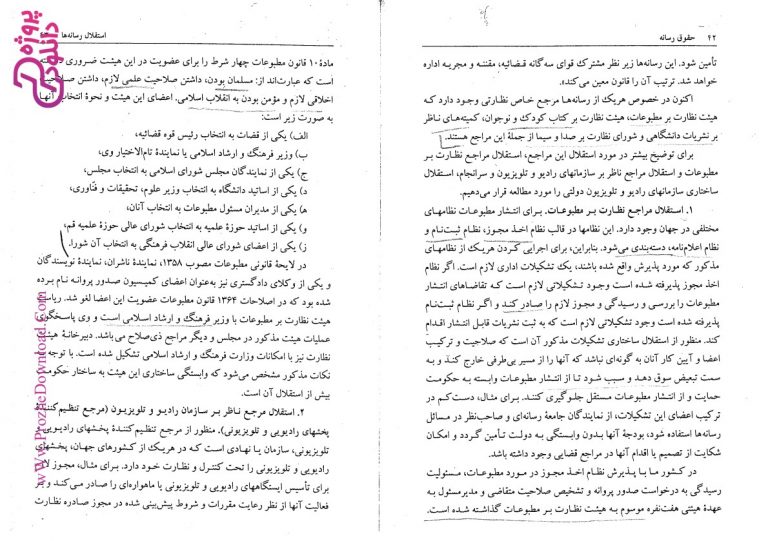 ۴۲ حقوق رسانه
تأمین شود. این رسانه‌ها زیر نظر مشترک قوای سه‌گانه قضائیه، مقننه و مجریه اداره
خواهد شد. ترتیب آن را قانون معین می‌کند».
اکنون در خصوص هریک از رسانه‌ها مرجع خاص نظارتی وجود دارد که
هیئت نظارت بر مطبوعات، هیئت نظارت بر کتاب کودک و نوجوان، کمیته‌های ناظر
بر نشریات دانشگاهی و شورای نظارت بر صدا و سیما از جملهٔ این مراجع هستند.
برای توضیح بیشتر در مورد استقلال این مراجع، استقلال مراجع نظارت بر
مطبوعات و استقلال مراجع ناظر بر سازمانهای رادیو و تلویزیون و سرانجام، استقلال
ساختاری سازمانهای رادیو و تلویزیون دولتی را مورد مطالعه قرار می‌دهیم.
۱. استقلال مراجع نظارت بر مطبوعات. برای انتشار مطبوعات نظامهای
مختلفی در جهان وجود دارد. این نظامها در قالب نظام اخذ مجوز، نظام ثبت‌نام و
نظام اعلام‌نامه، دسته‌بندی می‌شود. بنابراین، برای اجرایی کردن هریک از نظامهای
مذکور که مورد پذیرش واقع شده باشند، یک تشکیلات اداری لازم است. اگر نظام
اخذ مجوز پذیرفته شده است وجود تشکیلاتی لازم است کـه تقاضاهای انتشار
مطبوعات را بررسی و رسیدگی و مجوز لازم را صادر کند و اگر نظام ثبت‌نام
پذیرفته شده است وجود تشکیلاتی لازم است که به ثبت نشریات قابل انتشار اقدام
کند. منظور از استقلال ساختاری تشکیلات مذکور آن است که صلاحیت و ترکیب
اعضا و آیین کار آنان به گونه‌ای نباشد که آنها را از مسیر بی‌طرفی خارج کند و به
سمت تبعیض سوق دهد و سبب شود تا از انتشار مطبوعات وابسته به حکومت
حمایت و از انتشار مطبوعات مستقل جلوگیری کنند. برای مثال، دست‌کم در
ترکیب اعضای این تشکیلات، از نمایندگان جامعهٔ رسانه‌ای و صاحب‌نظر در مسائل
رسانه‌ها استفاده شود، بودجهٔ آنها بدون وابستگی به دولت تأمین گردد و امکان
شکایت از تصمیم یا اقدام آنها در مراجع قضایی وجود داشته باشد.
در کشور مـا بـا پـذیرش نظـام اخـذ مجـوز در مـورد مطبوعات، مسئولیت
رسیدگی به درخواست صدور پروانه و تشخیص صلاحیت متقاضی و مدیرمسئول به
عهدهٔ هیئتی هفت‌نفره موسوم به هیئت نظارت بر مطبوعات گذاشته شده است.
استقلال رسانه‌ها
مادهٔ ۱۰ قانون مطبوعات چهار شرط را برای عضویت در این هیئت ضروری
است که عبارت‌اند از: مسلمان بودن، داشتن صلاحیت علمی لازم، داشتن
اخلاقی لازم و مؤمن بودن به انقلاب اسلامی. اعضای این هیئت و نحوهٔ انتخاب آنها
به صورت زیر است:
الف) یکی از قضات به انتخاب رئیس قوه قضائیه،
ب) وزیر فرهنگ و ارشاد اسلامی یا نمایندهٔ تام‌الاختیار وی،
ج) یکی از نمایندگان مجلس شورای اسلامی به انتخاب مجلس،
د) یکی از اساتید دانشگاه به انتخاب وزیر علوم، تحقیقات و فنّاوری،
ه) یکی از مدیران مسئول مطبوعات به انتخاب آنان،
و) یکی از اساتید حوزهٔ علمیه به انتخاب شورای عالی حوزهٔ علمیه قم،
ز) یکی از اعضای شورای عالی انقلاب فرهنگی به انتخاب آن شورا.
در لایحهٔ قانونی مطبوعات مصوب ۱۳۵۸، نمایندهٔ ناشران، نمایندهٔ نویسندگان
و یکی از وکلای دادگستری نیز به‌عنوان اعضای کمیسیون صدور پروانـه نام بـرده
شده بود که در اصلاحات ۱۳۶۴ قانون مطبوعات عضویت این اعضا لغو شد.
هیئت نظارت بر مطبوعات با وزیر فرهنگ و ارشاد اسلامی است و وی پاسخگوی
عملیات هیئت مذکور در مجلس و دیگر مراجع ذی‌صلاح می‌باشد. دبیرخانهٔ
نظارت نیز با امکانات وزارت فرهنگ و ارشاد اسلامی تشکیل شده است. با توجه
نکات مذکور مشخص می‌شود که وابستگی ساختاری این هیئت به ساختار حکومت
بیش از استقلال آن است.
۲. استقلال مرجع ناظر بر سازمان رادیو و تلویزیون (مرجع تنظیم‌کنندهٔ
پخشهای رادیویی و تلویزیونی). منظور از مرجع تنظیم‌کنندهٔ پخشهای رادیویی و
تلویزیونی، سازمان یا نهادی است که در هریک از کشورهای جهان، پخشهای
رادیویی و تلویزیونی را تحت کنترل و نظارت خود دارد. برای مثال، مجوز
برای تأسیس ایستگاههای رادیویی و تلویزیونی یا ماهواره‌ای را صادر می‌کند و
فعالیت آنها از نظر رعایت مقررات و شروط پیش‌بینی شده در مجوز صادره نظارت
دانلود پروژه
www.ProzheDownload.com